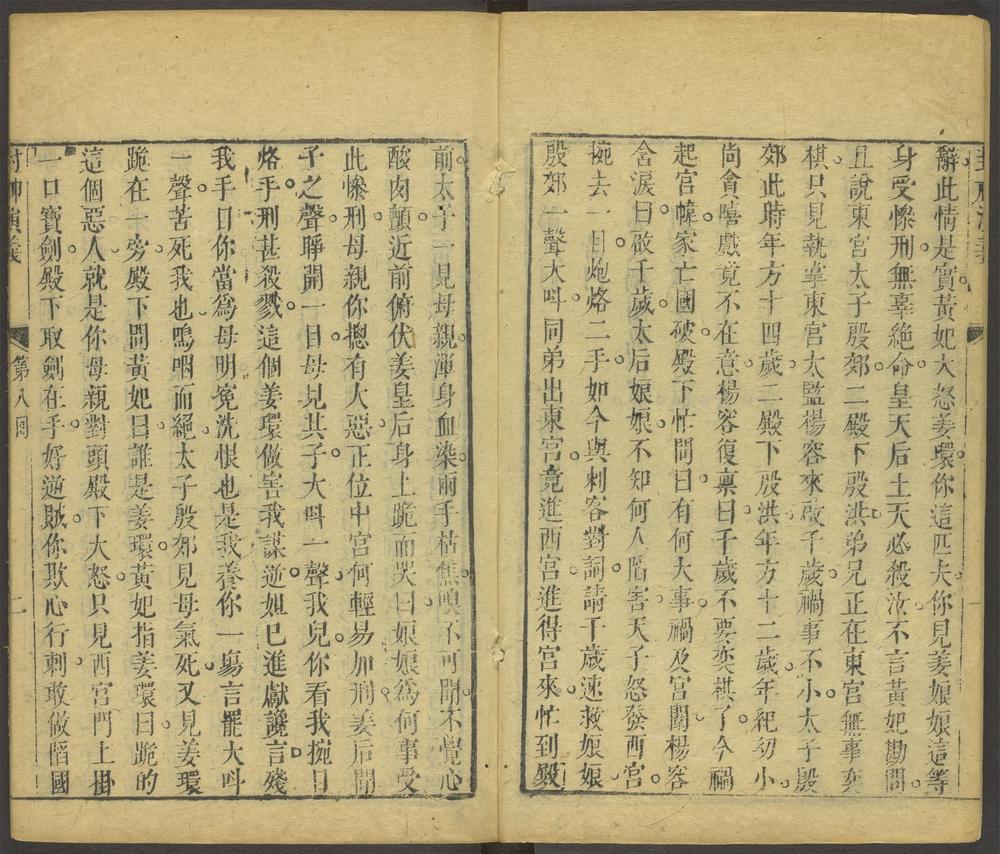 辭此情是實黃妃大怒姜環你這匹夫你見姜娘娘這等
身受慘刑無辜絕命皇天后土天必殺汝不言黃妃勘問
且說東宮太子殷郊二殿下殷洪弟兄正在東宮無事奕
棋只見執掌東宮太監楊容來啟千歲禍事不小太子殷
郊此時年方十四歲二殿下殷洪年方十二歲年紀幼小
尚貪嬉戲竟不在意楊容復禀曰千歲不要奕棋了今禍
起宮幃家亡國破殿下忙問曰有何大事禍及宮闈楊容
含淚曰啟千歲太后娘娘不知何人陷害天子怒發西宮
捥去一目炮烙二手如今與刺客對詞請千歲速救娘娘
殷郊一聲大叫同弟出東宮竟進西宮進得宮來忙到殿
前太子一見母親渾身血染兩手枯焦嗅不可聞不覺心
酸肉顫近前俯伏姜皇后身上跪而哭曰娘娘為何事受
此慘刑母親你揔有大惡正位中宮何輕易加刑姜后聞
子之聲睜開一目母見其子大叫一聲我兒你看我捥目
烙手刑甚殺戮這個姜環做害我謀逆妲己進獻讒言殘
我手目你當為母明冤洗恨也是我養你一塲言罷大叫
一聲苦死我也嗚咽而絕太子殷郊見母氣死又見姜環
跪在一旁殿下問黃妃曰誰是姜環黃妃指姜環曰跪的
這個惡人就是你母親對頭殿下大怒只見西宮門上掛
一口寶劍殿下取劍在手好逆賊你欺心行刺敢做陷國
封神演義 第八回 二